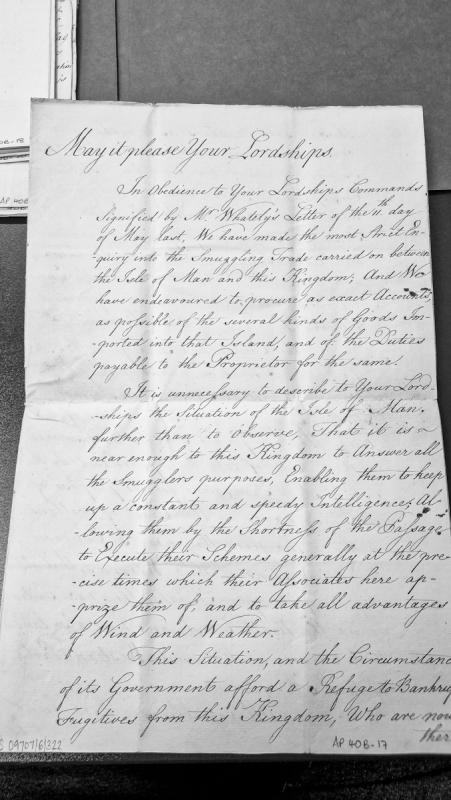 May it please Your Lordships.
In Obedience to Your Lordships Commands
Signified by Mr. Whately's Letter of the 11th day
of May last, We have made the most Strict En-
-quiry into the Smuggling Trade carried on between
the Isle of Man and this Kingdom; And We
have endeavoured to procure as exact Accounts,
as possible of the several kinds of Goods Im-
-ported into that Island, and of the Duties
payable to the Proprietor for the same.
It is unnecessary to describe to Your Lord-
-ships the Situation of the Isle of Man,
further than to Observe, That it is
near enough to this Kingdom to Answer all
the Smugglers purposes, Enabling them to keep
up a constant and speedy Intelligence; Al-
-lowing them by the Shortness of the Passage
to Execute their Schemes generally at the pre-
-cise times which their Associates here ap-
-prize them of; and to take all advantages
of Wind and Weather.
This Situation, and the Circumstanc
of its Government afford a Refuge to Bankrup
Fugitives from this Kingdom, Who are now
ther
09707/6/322
AP 40B-17
AP 40B